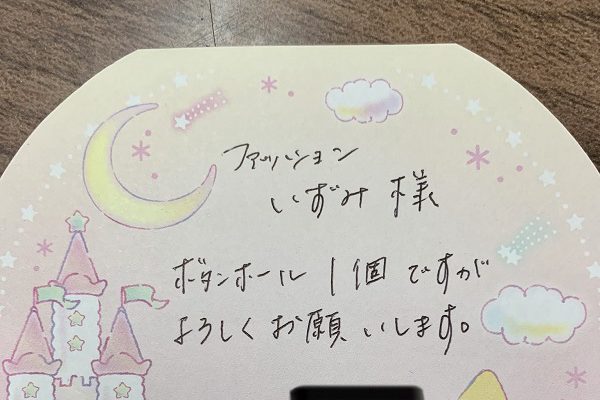 ファッション
いずみ 様
ボタンホール 1個 ですが
よろしく お願いします。